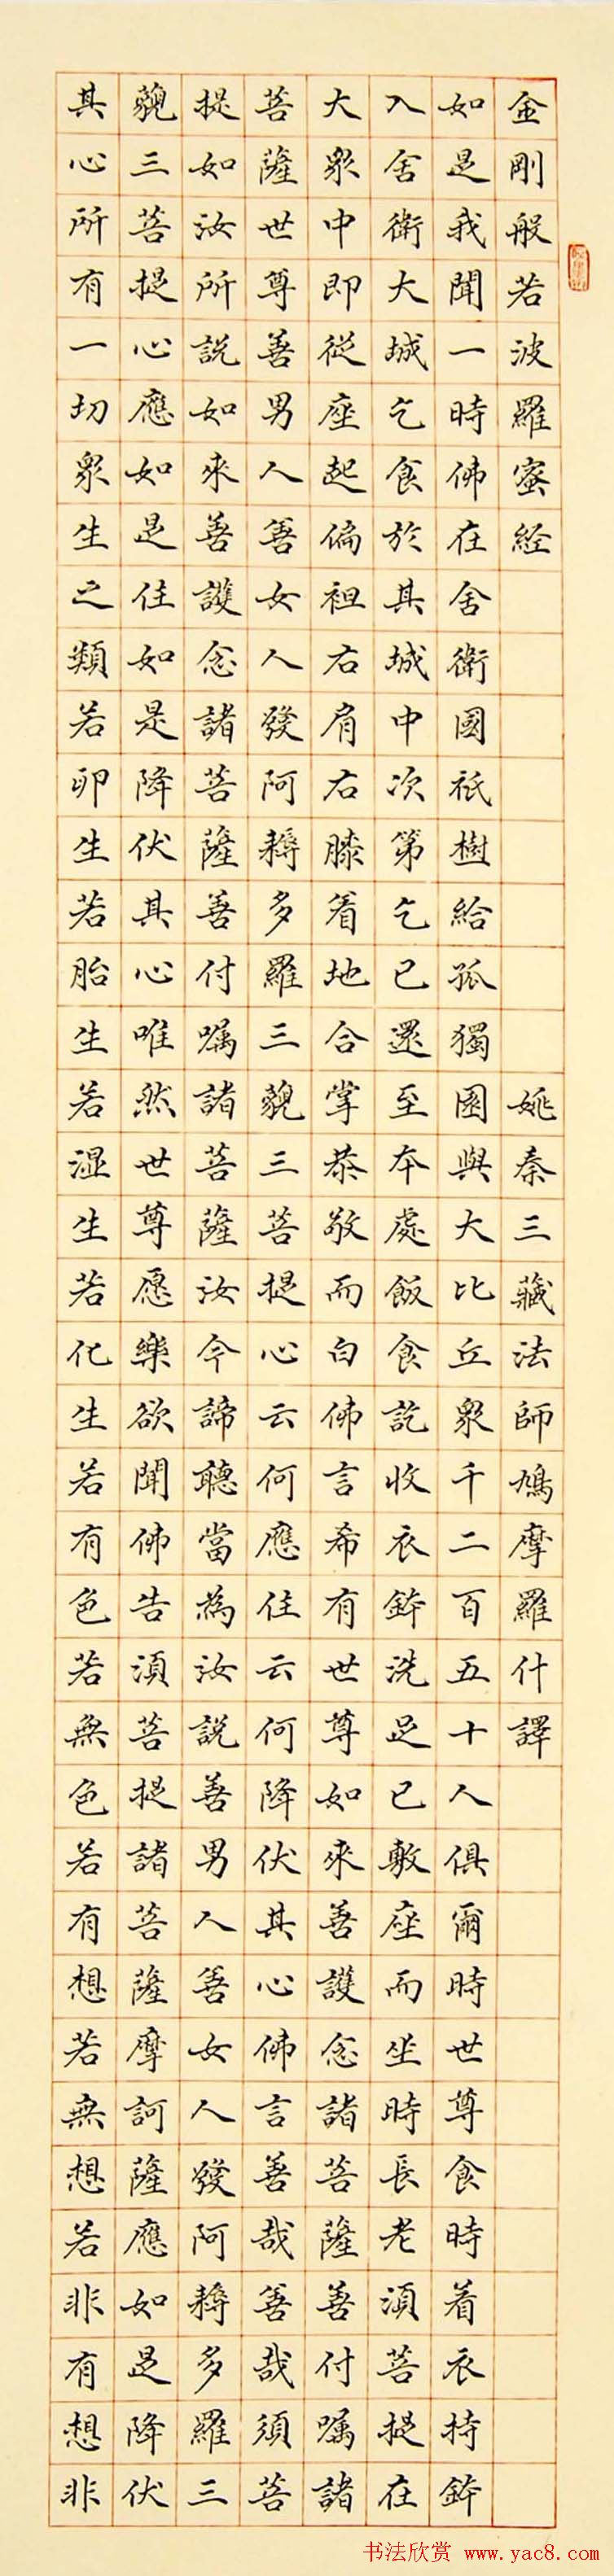 金剛般若波羅蜜經 姚秦三藏法師鳩摩羅什譯
如是我聞一時佛在舍衛國祇樹給孤獨園與大比丘眾千二百五十人俱爾時世尊食時着衣持鉢
入舍衛大城乞食於其城中次第乞已還至本處飯食訖收衣鉢洗足已敷座而坐時長老須菩提在
大眾中即從座起偏袒右肩右膝着地合掌恭敬而白佛言希有世尊如來善護念諸菩薩善付嘱諸
菩薩世尊善男人善女人發阿耨多羅三藐三菩提心云何應住云何降伏其心佛言善哉善哉須菩
提如汝所說如來善護念諸菩薩善付嘱諸菩薩汝今諦聽當為汝說善男人善女人發阿耨多羅三
藐三菩提心應如是住如是降伏其心唯然世尊愿樂欲聞佛告須菩提諸菩薩摩訶薩應如是降伏
其心所有一切眾生之類若卵生若胎生若湿生若化生若有色若無色若有想若無想若非有想非
书法欣赏 www.yac8.com